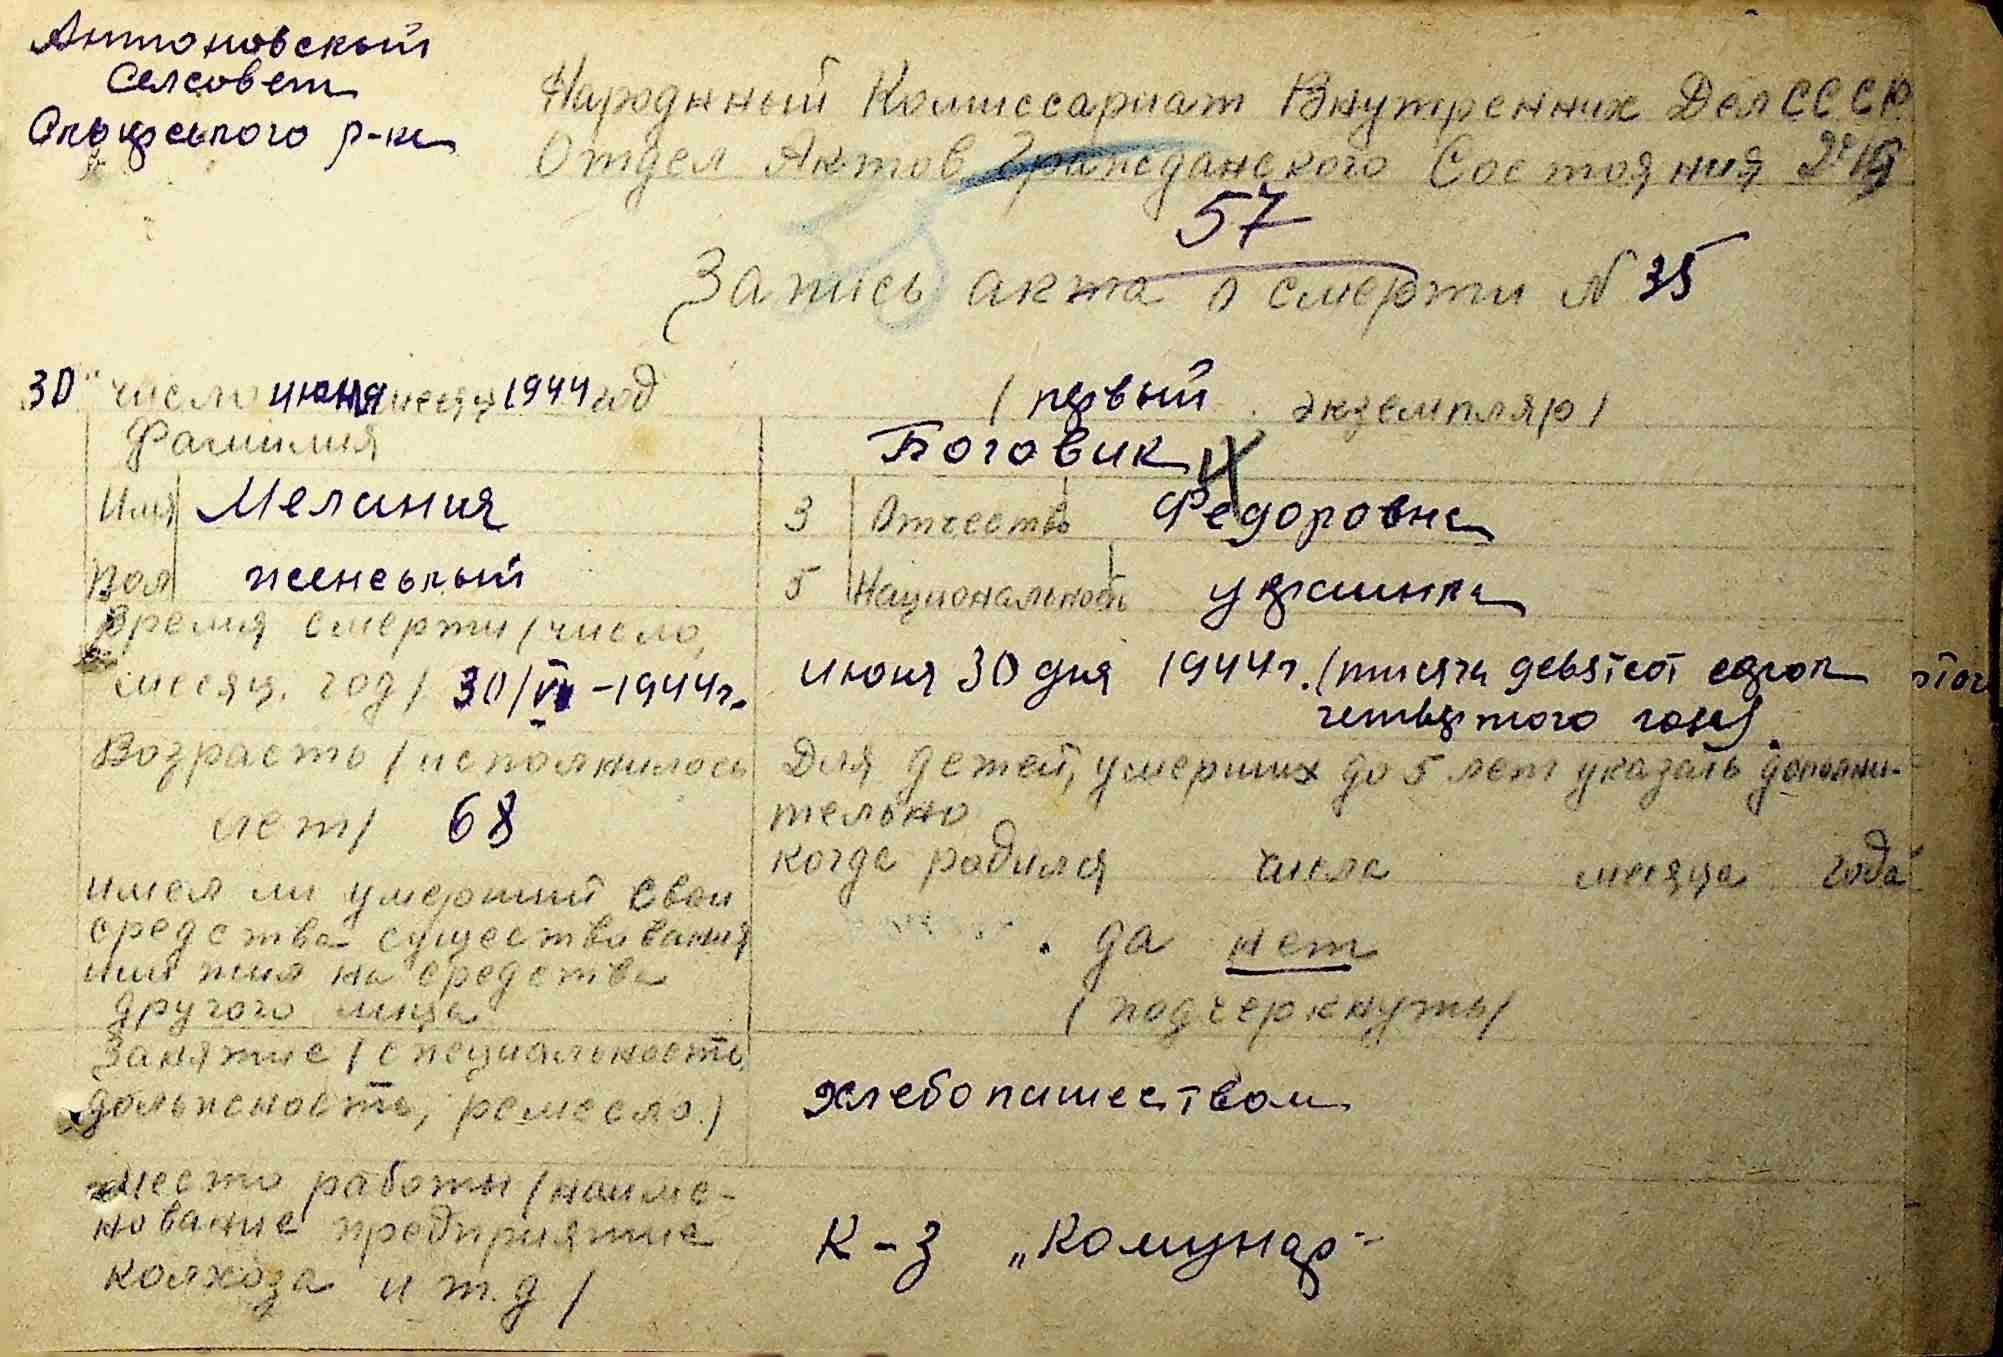 Антоновский
Селсовет
р-на
Народнный Комиссариат Внутренних Дел СССР
Отдел Актов Гражданского Состояния
57
Запись акта о смерти N 35
30" число июня месяц 1944 год
/ первый экземпляр /
Фамилия Боговик
Имя Мелания 3 Отчество Федоровна
Пол женський 5 Национальность украинка
Время смерти / число,
месяц. год / 30/VI-1944г. июня 30 дня 1944г. (тисяча девятсот сорок
четвертого года)
Возрасть / исполнилось Для детей, умерших до 5 лет указать дополни-
тельно
лет / 68
когда родился числа месяца года
имел ли умерший свои
средства существования да нет
или жил на средства
другого лица / подчеркнуть /
Занятие / специальность
должность, ремесло.) хлебопашеством
место работы / наиме-
нование предприятие К-з „Комунар"
колхоза и т.д /